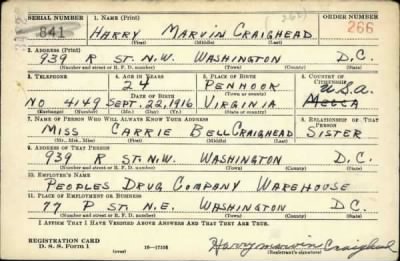 SERIAL NUMBER 1. NAME (Print) ORDER NUMBER
641 HARRY MARVIN CRAIGHEAD 266
(First) (Middle) (Last)
2. ADDRESS (Print)
939 R ST. N.W. WASHINGTON D.C.
(Number and street or R. F. D. number) (Town) (County) (State)
3. TELEPHONE 4. AGE IN YEARS 5. PLACE OF BIRTH 6. COUNTRY OF CITIZENSHIP
24 PENHOOK U.S.A.
DATE OF BIRTH (Town or county)
NO 4149 SEPT. 22, 1916 VIRGINIA
(Exchange) (Number) (Mo.) (Day) (Yr.) (State or country)
7. NAME OF PERSON WHO WILL ALWAYS KNOW YOUR ADDRESS 8. RELATIONSHIP OF THAT PERSON
MISS CARRIE BELL CRAIGHEAD SISTER
(Mr., Mrs., Miss) (First) (Middle) (Last)
9. ADDRESS OF THAT PERSON
939 R ST. N.W. WASHINGTON D.C.
(Number and street or R. F. D. number) (Town) (County) (State)
10. EMPLOYER'S NAME
PEOPLES DRUG COMPANY WAREHOUSE
11. PLACE OF EMPLOYMENT OR BUSINESS
77 P ST. N.E. WASHINGTON D.C.
(Number and street or R. F. D. number) (Town) (County) (State)
I AFFIRM THAT I HAVE VERIFIED ABOVE ANSWERS AND THAT THEY ARE TRUE.
REGISTRATION CARD
D. S. S. Form 1 (over) 16—17105 Harry Marvin Craighead
(Registrant's signature)